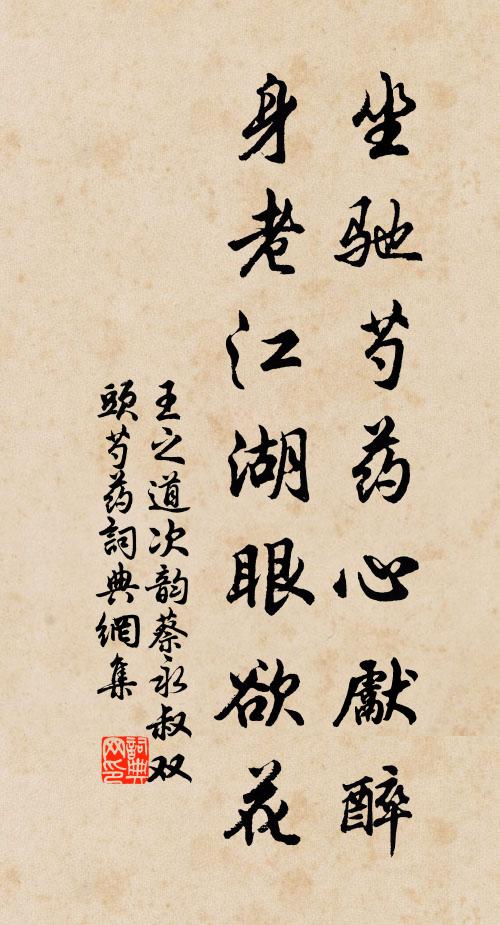 坐驰芍药心獻醉
身老江湖眼欲花
王之道次韵蔡永叔双
頭芍药詞典網集
詞典
网印